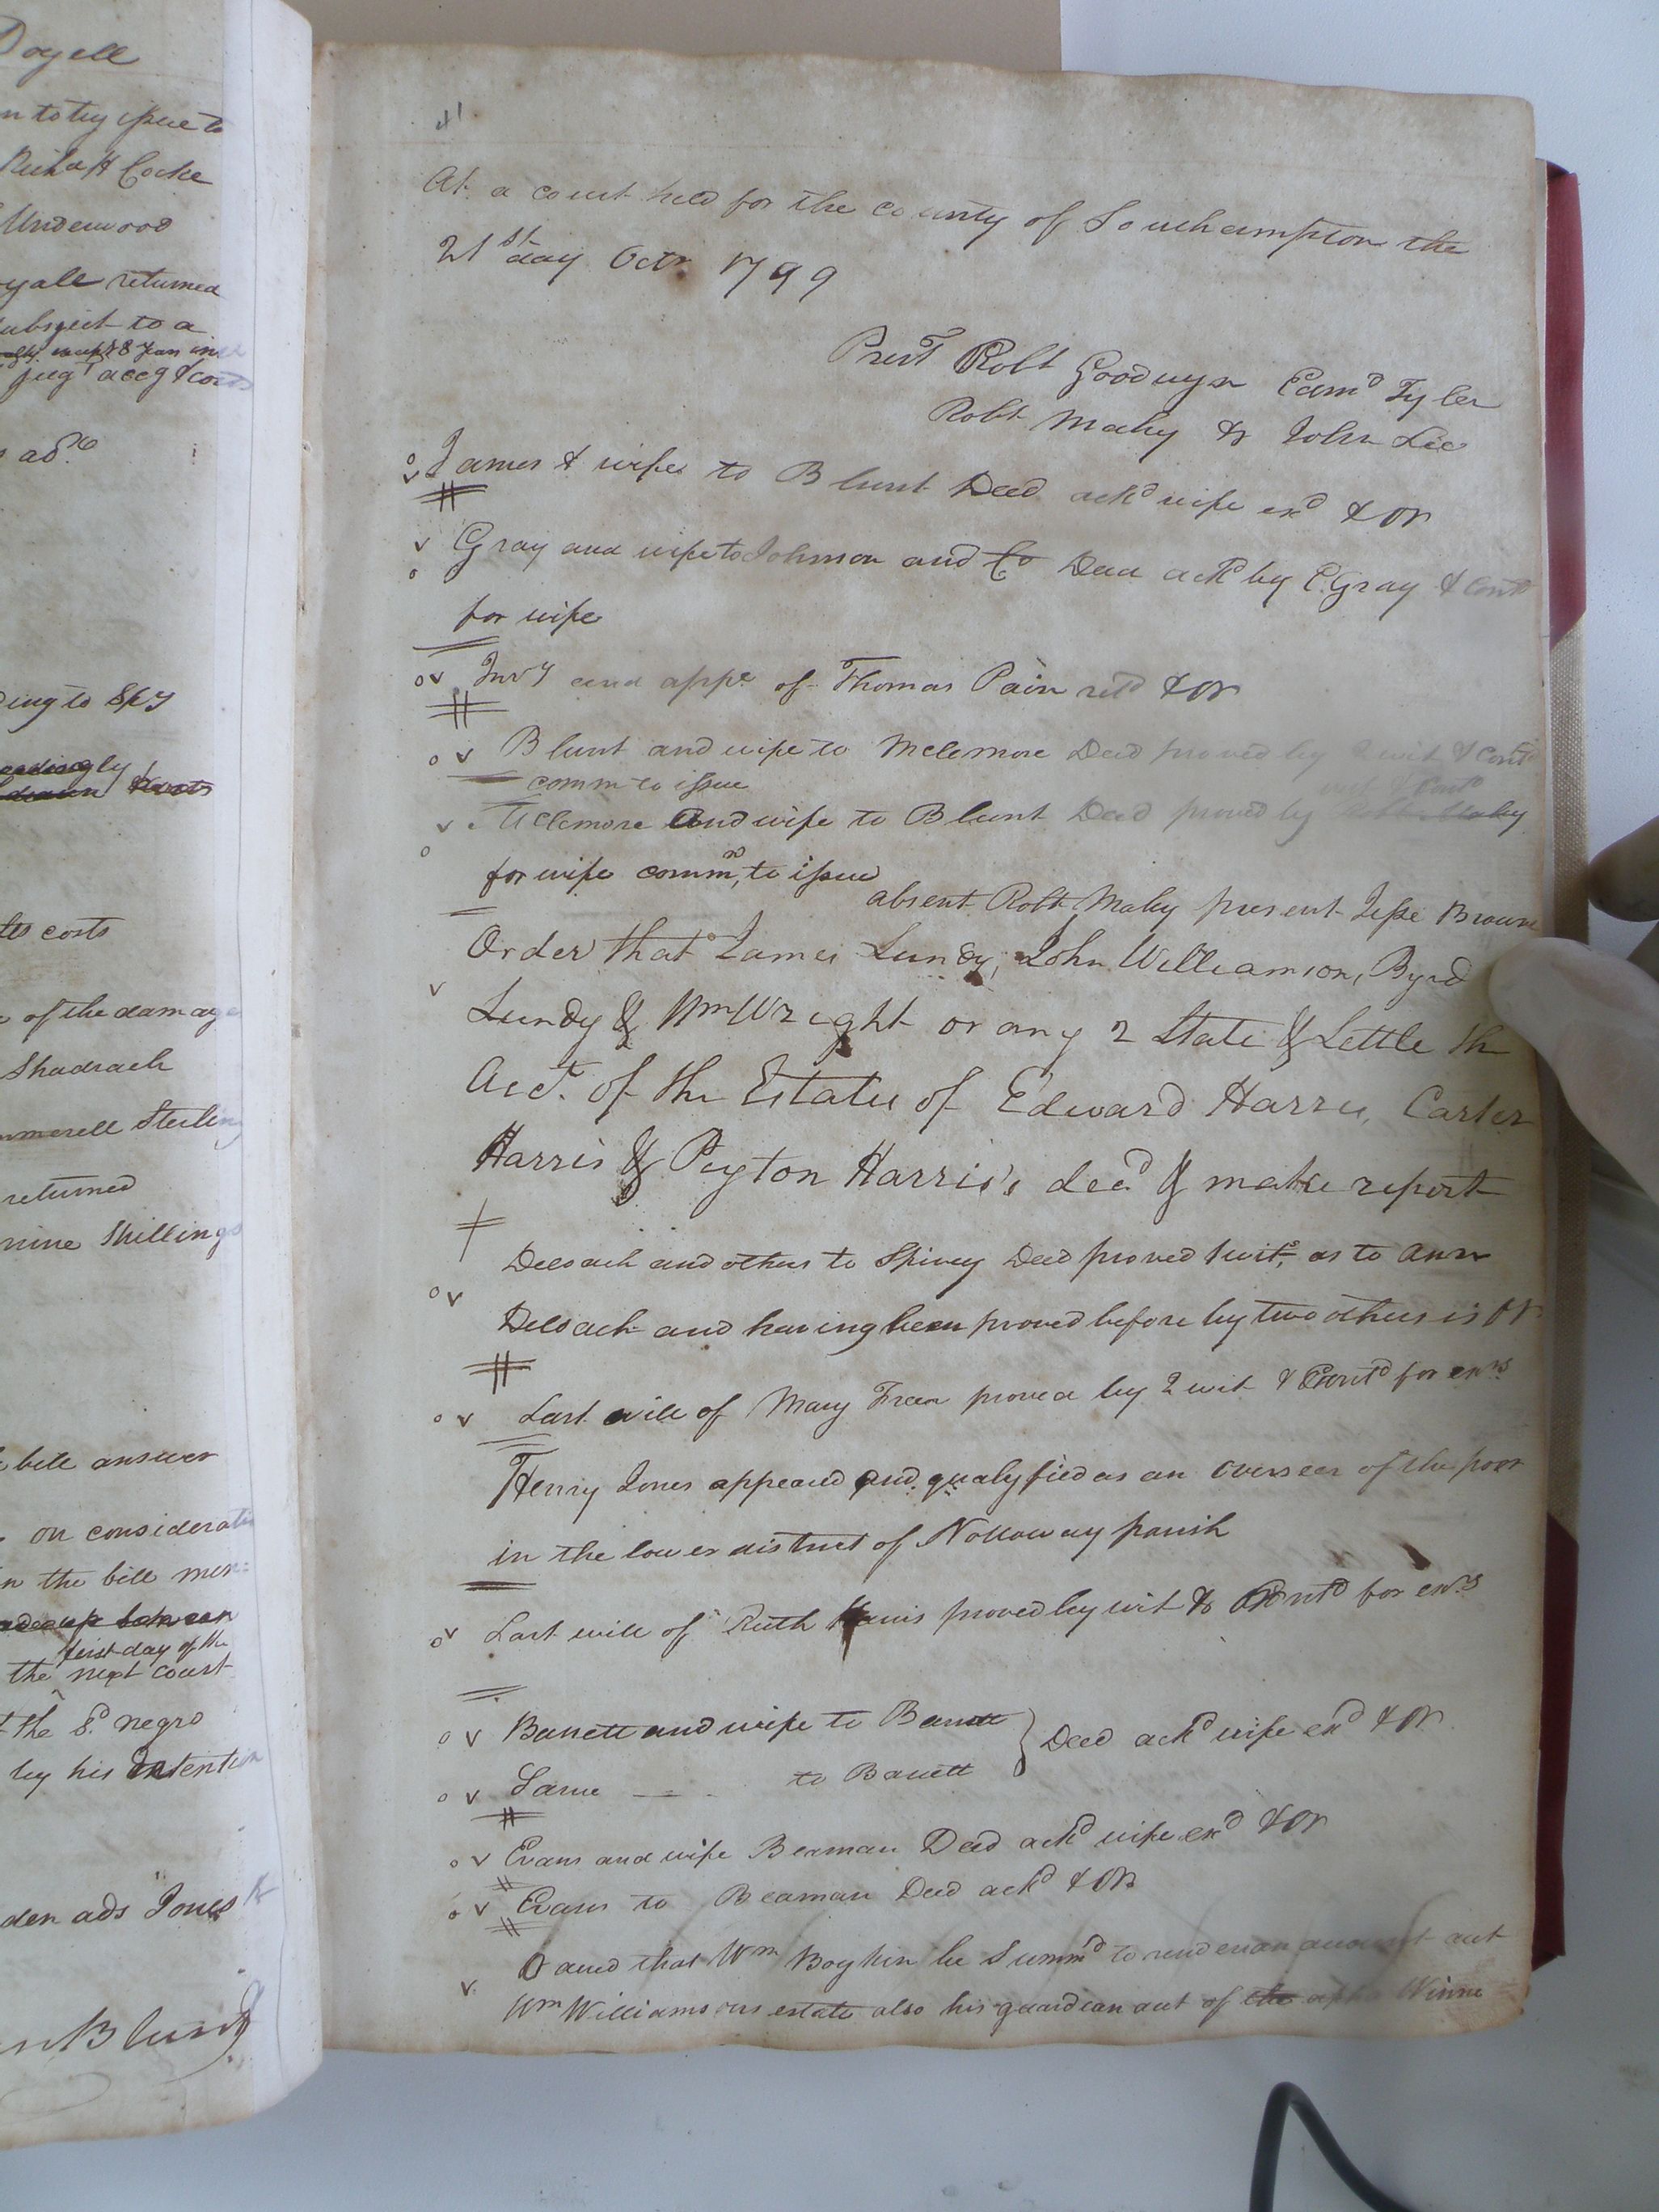 Dayell
n to try issue to
Richd H Cocke
Underwood
yall returned
subject to a
except 8 Years
jugt accg & costs
ads
ding to Spy
tes costs
of the damage
Shadrach
mmerell Sterling
returned
nine Shillings
bill answer
on considerati
n the bill men:
first day of the
the next court
t the Sd negro
by his intention
den ads Jones
n Blunt
41
At a court held for the county of Southampton the
21st day Octr 1799
Prest Robt Goodwyn Edmd Tyler
Robt Maby & John Lee
o v James & wife to Blunt Deed ackd wife exd & OR
v o Gray and wife to Johnson and Co Deed ackd by E. Gray & Contd
for wife
o v Invy and appt of Thomas Pain retd & OR
o v Blunt and wife to Mclemore Deed proved by 2 wit & Contd
comm to issue
wit & Contd
v o Mclemore and wife to Blunt Deed proved by Robt Maby
for wife commn to issue
absent Robt Maby present Jesse Brown
Order that James Lundy, John Williamson, Byrd
v Lundy & Wm Wright or any 2 State & Settle th
Acct. of the Estates of Edward Harris, Carter
Harris & Peyton Harris's decd & make report
Deloach and others to Spivey Deed proved 1 wits, as to Ann
o v Deloach and having been proved before by two others is OR
o v Last will of Mary Freen proved by 2 wit & Contd for exrs
Henry Jones appeared and qualyfied as an Overseer of the poor
in the lower district of Nottoway parish
o v Last will of Ruth Harris proved by wit & Contd for exrs
o v Barrett and wife to Barrett } Deed ackd wife exd & OR
o v Same — to Barrett
o v Evans and wife Beaman Deed ackd wife exd & OR
o v Evans to Beaman Deed ackd & OR
v Ordered that Wm Boykin be Summd to render an account aut
Wm Williamsons estate also his guardian aut of the Winne